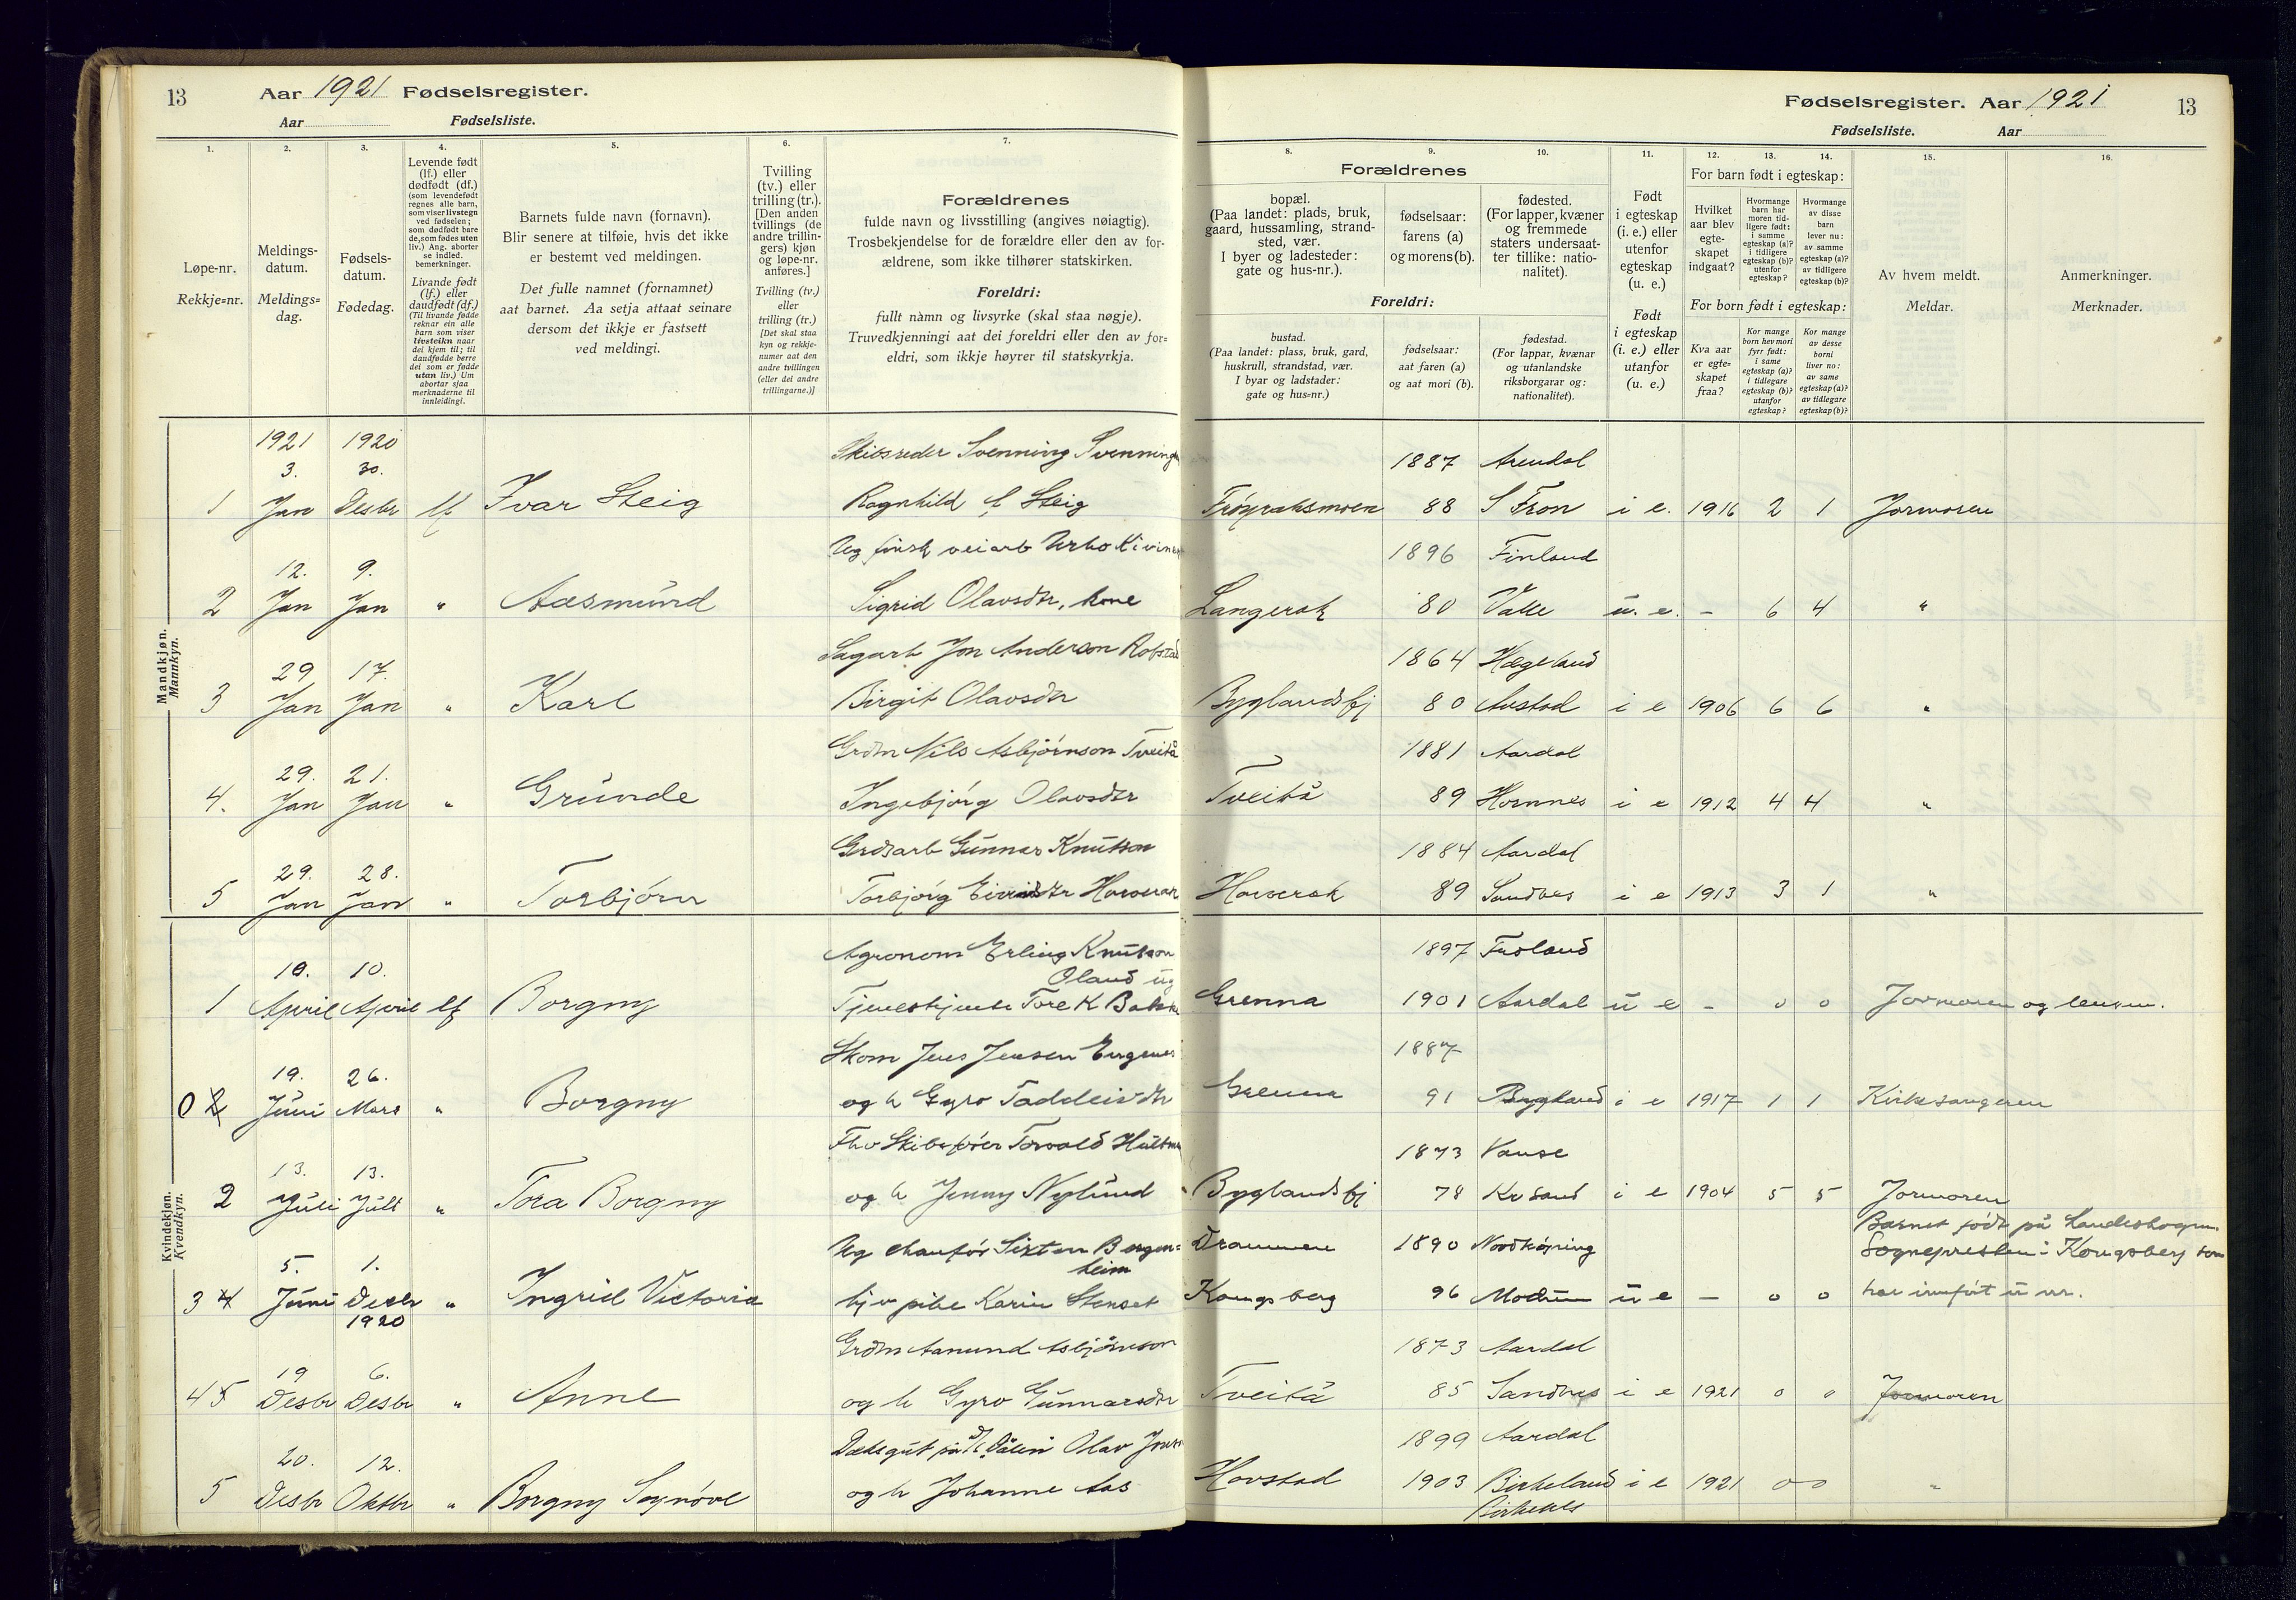 13 Aar 1921 Fødselsregister.
Aar Fødselsliste.
1. 2. 3. 4. 5. 6. 7.
Løpe-nr.
Rekkje=nr.
Meldings-
datum.
Meldings=
dag.
Fødsels-
datum.
Fødedag.
Levende født
(lf.) eller
dødfødt (df.)
(som levendefødt
regnes alle barn,
som viser livstegn
ved fødselen;
som dødfødt bare
de, som fødes uten
liv.) Ang. aborter
se indled.
bemerkninger.
Livande født
(lf.) eller
daudfødt (df.)
(Til livande fødde
reknar ein alle
barn som viser
livsteikn naar
dei kjem til; til
daudfødde berre
dei som er fødde
utan liv.) Um
abortar sjaa
merknaderne til
innleidingi.
Barnets fulde navn (fornavn).
Blir senere at tilføie, hvis det ikke
er bestemt ved meldingen.
Det fulle namnet (fornamnet)
aat barnet. Aa setja attaat seinare
dersom det ikkje er fastsett
ved meldingi.
Tvilling
(tv.) eller
trilling (tr.).
[Den anden
tvillings (de
andre trillin-
gers) kjøn
og løpe-nr.
anføres.]
Tvilling (tv.)
eller
trilling (tr.)
[Det skal staa
kyn og rekkje-
numer aat den
andre tvillingen
(eller dei andre
trillingarne.)]
Forældrenes
fulde navn og livsstilling (angives nøiagtig).
Trosbekjendelse for de forældre eller den av for-
ældrene, som ikke tilhører statskirken.
Foreldri:
fullt namn og livsyrke (skal staa nøgje).
Truvedkjenningi aat dei foreldri eller den av for=
eldri, som ikkje høyrer til statskyrkja.
Fødselsregister. Aar 1921 13
Fødselsliste. Aar
8. 9. 10. 11. 12. 13. 14. 15. 16.
Forældrenes
bopæl.
(Paa landet: plads, bruk,
gaard, hussamling, strand-
sted, vær.
I byer og ladesteder:
gate og hus-nr.).
fødselsaar:
farens (a)
og morens (b).
fødested.
(For lapper, kvæner
og fremmede
staters undersaat-
ter tillike: natio-
nalitet).
Foreldri:
bustad.
(Paa landet: plass, bruk, gard,
huskrull, strandstad, vær.
I byar og ladstader:
gate og hus=nr.)
fødselsaar:
aat faren (a)
og aat mori (b).
fødestad.
(For lappar, kvænar
og utanlandske
riksborgarar og:
nationalitet).
Født
i egteskap
(i. e.) eller
utenfor
egteskap
(u. e.)
Født
i egteskap
(i. e.) eller
utanfor
(u. e.)
For barn født i egteskap:
Hvilket
aar blev
egte-
skapet
indgaat?
Hvormange
barn har
moren tid-
ligere født:
i samme
egteskap (a)?
i tidligere
egteskap (b)?
utenfor
egteskap?
Hvormange
av disse
barn
lever nu:
av samme
egteskap (a)?
av tidligere
egteskap (b)?
For born født i egteskap:
Kva aar
er egte=
skapet
fraa?
Kor mange
born hev mori
fyrr født:
i same
egteskap (a)?
i tidlegare
egteskap (b)?
utanfor
egteskap?
Kor mange
av desse
borni
liver no:
av same
egteskap (a)?
av tidlegare
egteskap (b)?
Av hvem meldt.
Meldar.
Anmerkninger.
Merknader.
Mandkjøn.
Mannkyn.
1921 1920 Skibsreder Svenning 1887 Arendal
3. 30.
1 Jan Desbr lf Ivar Steig Ragnhild f Steig 88 S Fron i e. 1916 2 1 Jormoren
Ug finsk veiarb Urho 1896 Finland
12. 9.
2 Jan Jan " Aasmund Sigrid Olavsdtr, kone Langerak 80 Valle u. e. – 6 4 "
Sagarb Jon Anderson 1864 Hægeland
29 17.
3 Jan Jan " Karl Birgit Olavsdtr Byglandsfj 80 Austad i e 1906 6 6 "
Grdm Nils Asbjørnson Tveitå 1881 Aardal
29. 21.
4. Jan Jan " Grunde Ingebjørg Olavsdtr Tveitå 89 Hornnes i e 1912 4 4 "
Grdsarb Gunnar Knutson 1884 Aardal
29. 28.
5 Jan Jan " Torbjørn Torbjørg Horverak 89 Sandnes i e 1913 3 1 "
Kvindekjøn.
Kvendkyn.
Agronom Erling Knutson 1897 Froland
10. 10. Oland ug
1 April April lf Borgny Tjenestjente Tore K Bakke Grenna 1901 Aardal u e – 0 0 Jormoren og lensm.
Skom Jens Jensen 1887
19. 26.
0 2 Juni Mars " Borgny og h Gyro Taddeivdtr Grenna 91 Bygland i e 1917 1 1 Kirkesangeren
Fhv Skibsfører Torvald 1873 Vanse
13. 13.
2 Juli Juli " Tora Borgny og h Jenny Nylund Byglandsfj 78 Kr sand i e 1904 5 5 Jormoren
Ug chaufør Sixten Bergen= Drammen 1890 Nordkøping Barnet født på
heim Sognepresten i Kongsberg som
5. 1.
3 4 Juni Desbr " Ingrid Victoria pike Karin Kongsberg 96 Modum u e – 0 0 har innført u nr.
1920
Grdm Aanund Asbjørnson 1873 Aardal
19 6.
4 5 Desbr Desbr " Anne og h Gyro Gunnarsdtr Tveitå 85 Sandnes i e 1921 0 0 Jormoren
Dæksgut på Olav 1899 Aardal
20. 12.
5 Desbr Oktbr " Borgny Synøve og h Johanne Aas Horstad 1903 Birkeland i e 1921 0 0 "
Birkenes